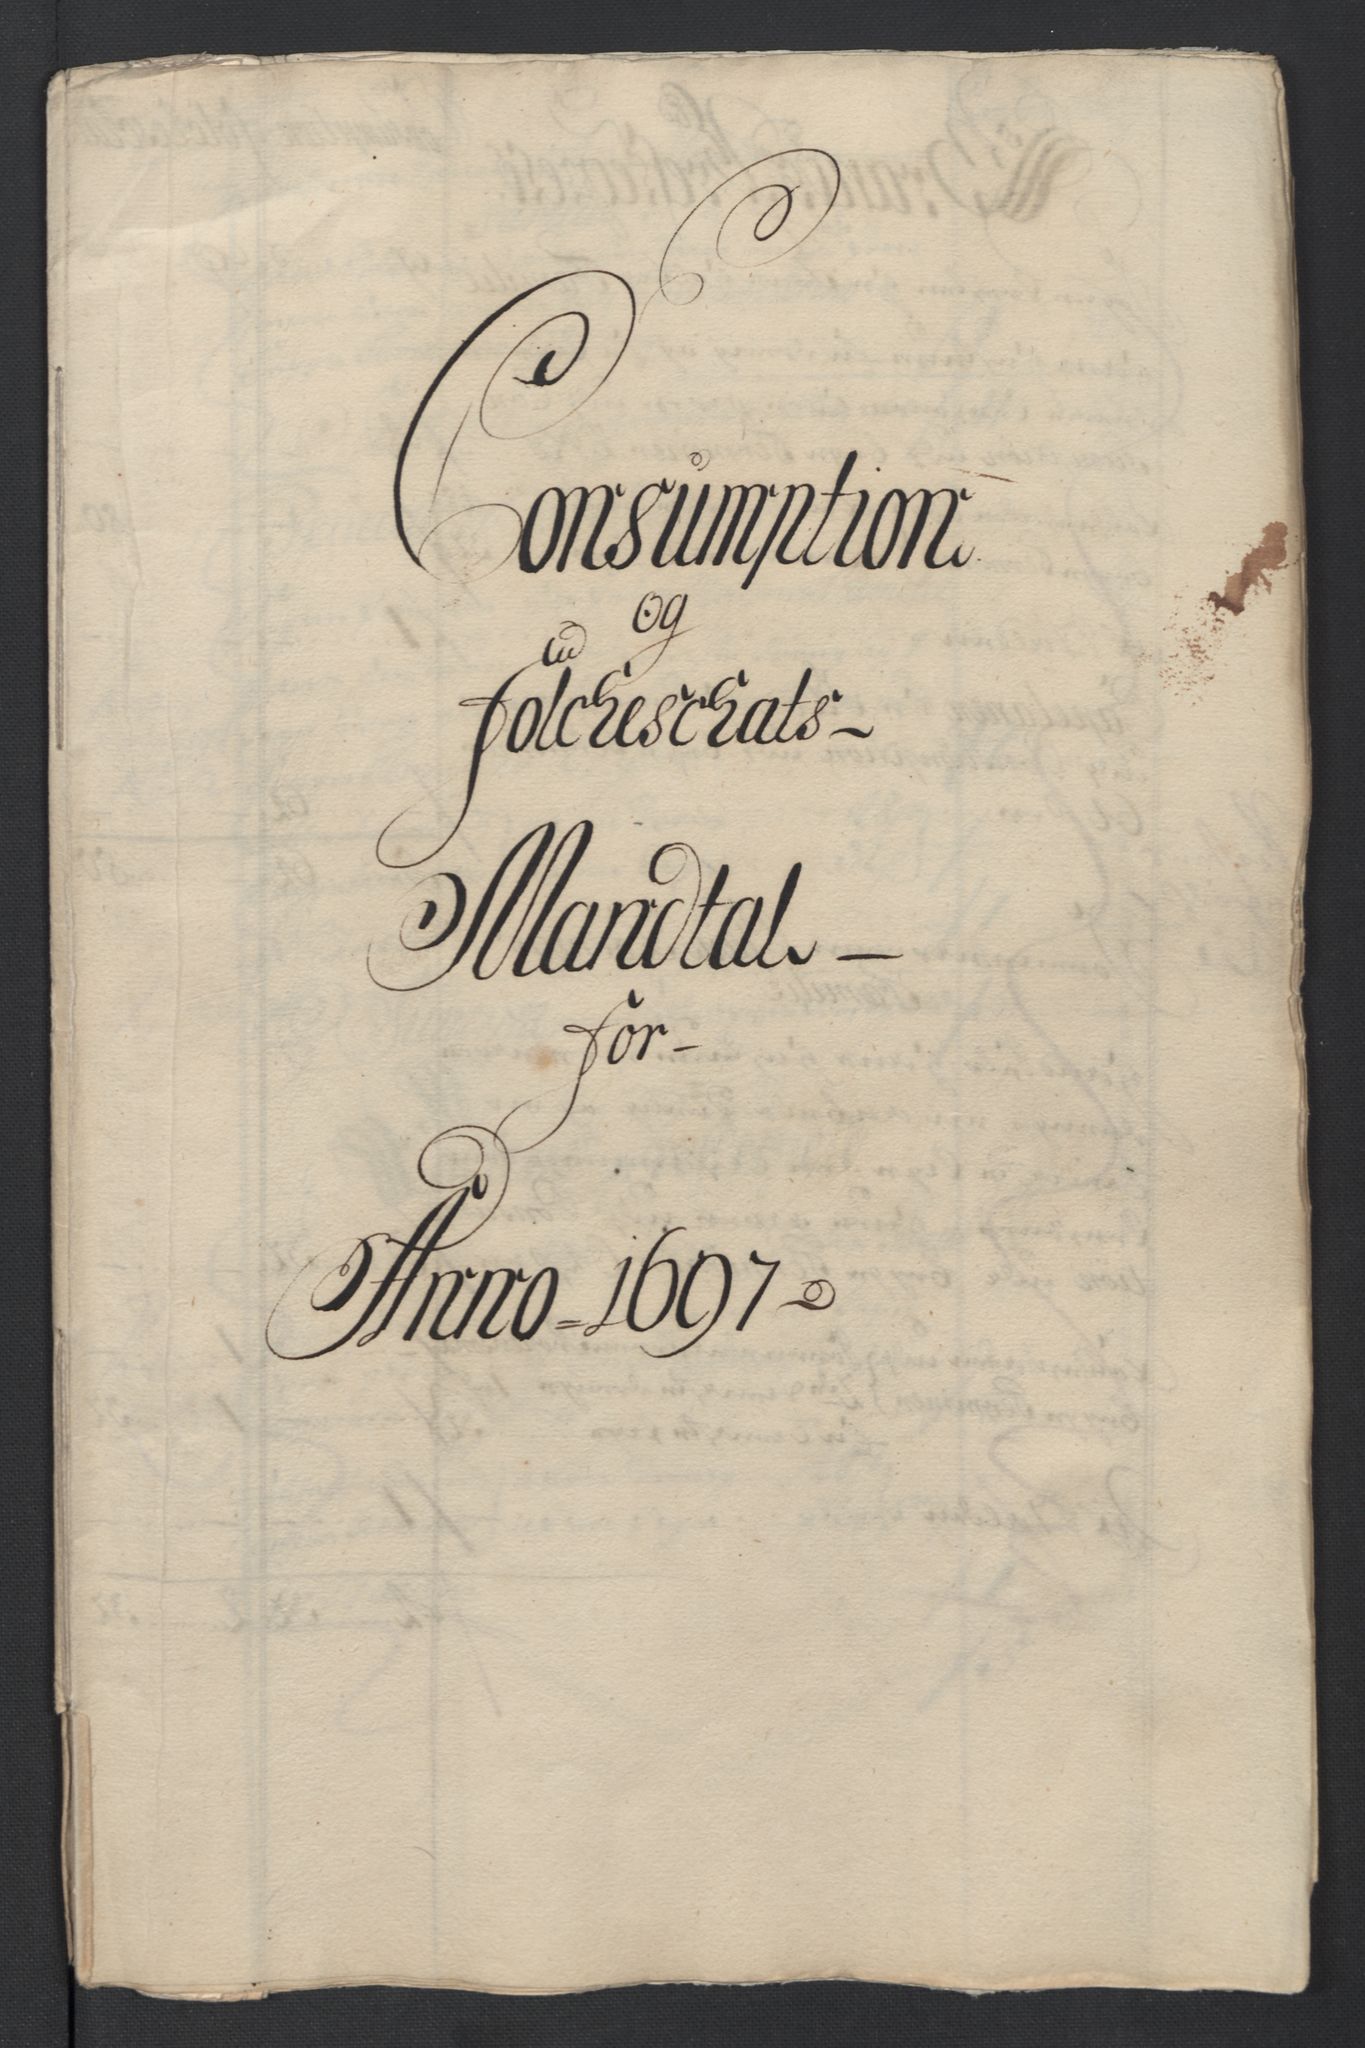 Consumption
og
folcheschats-
Mandtal. -
for-
Anno = 1697